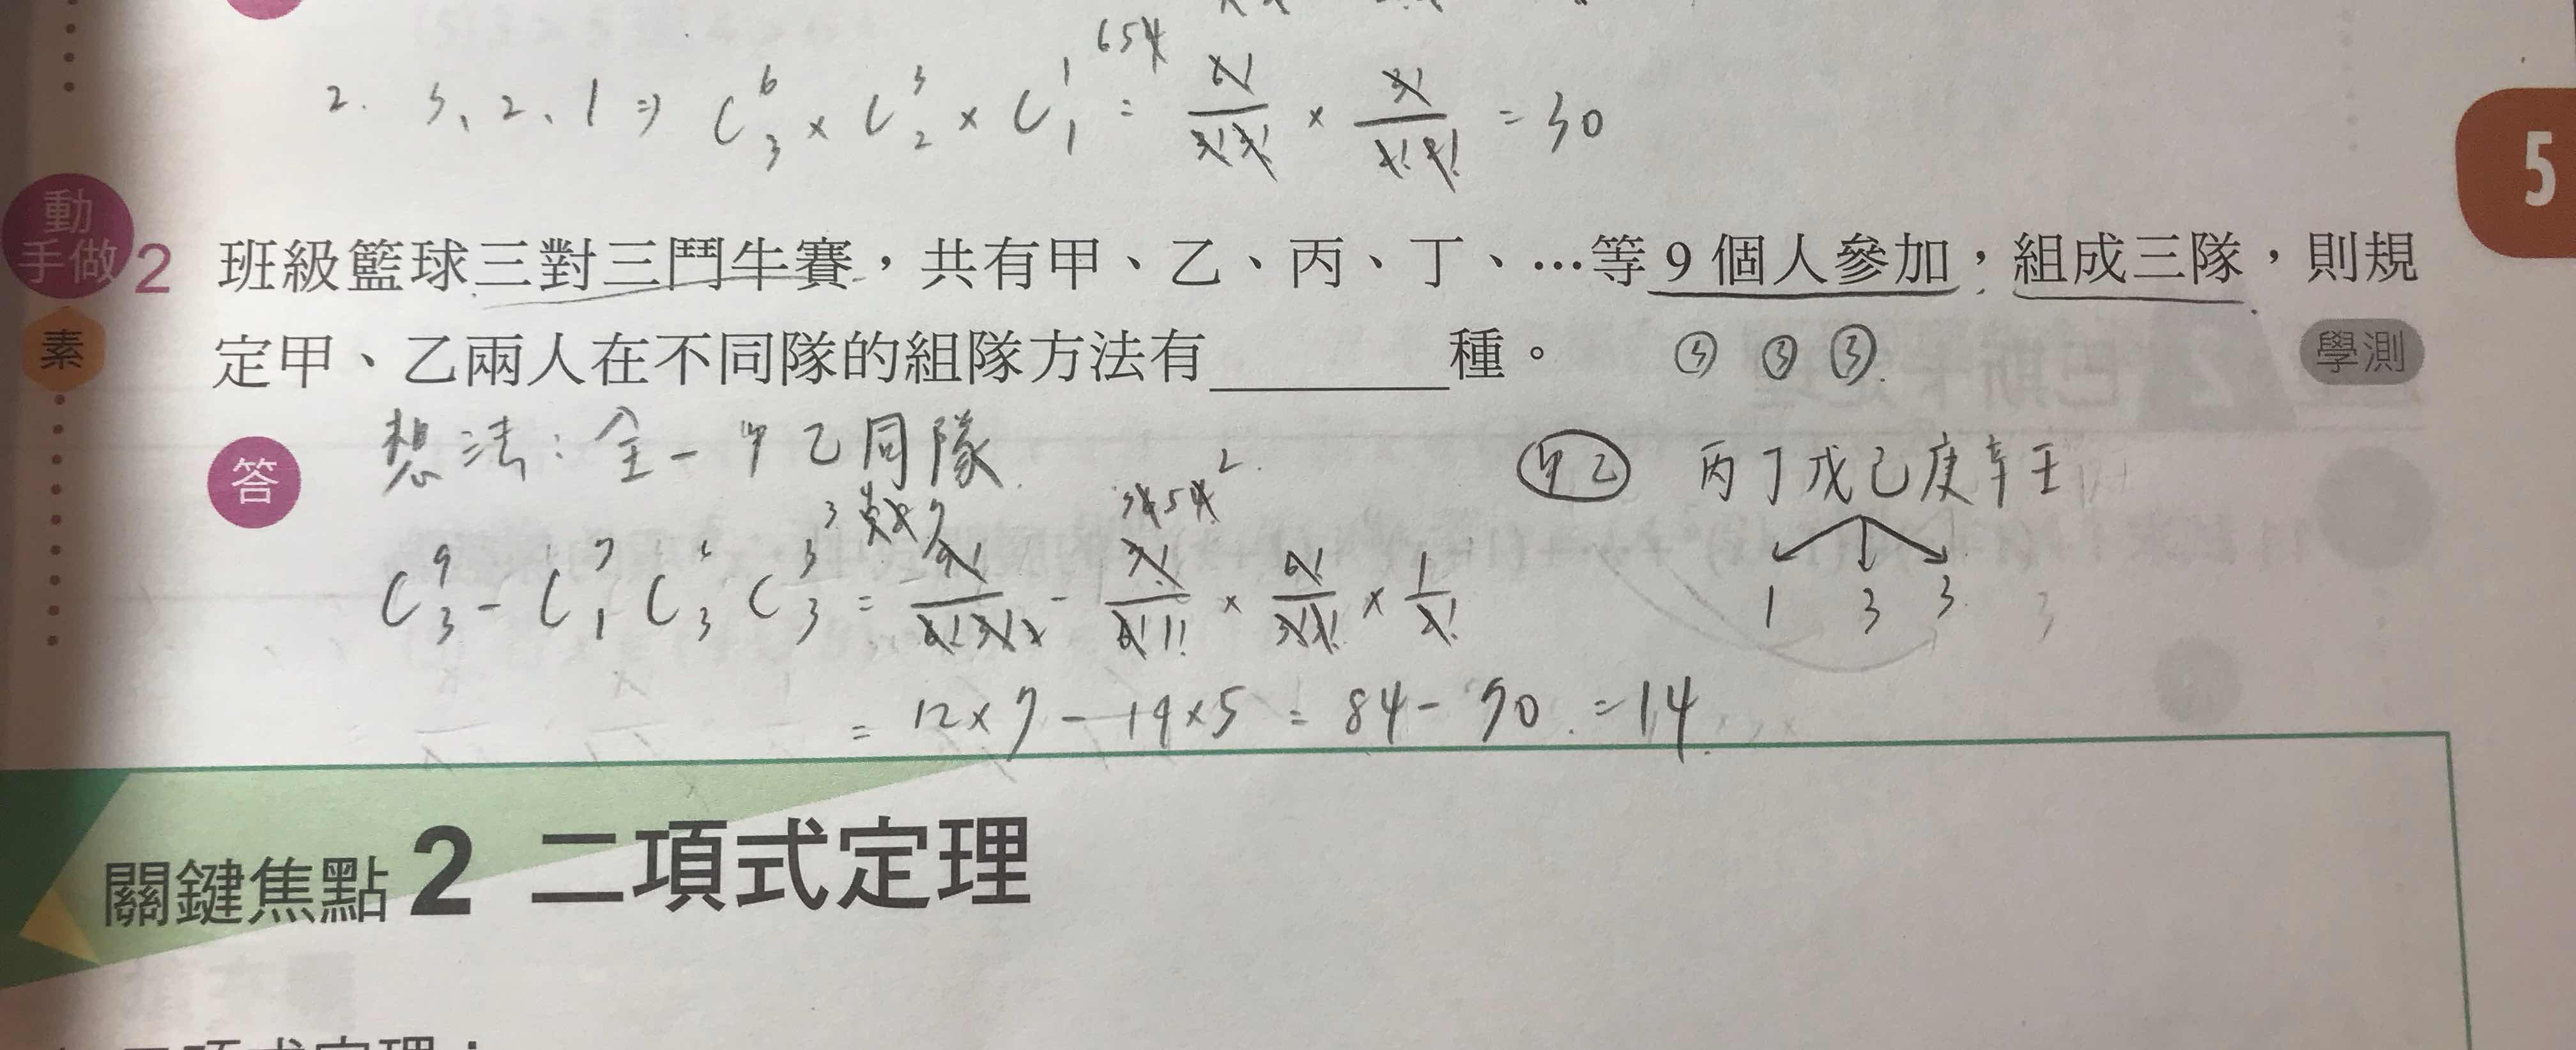 2. 3、2、1 ⇒ C⁶₃ × C³₂ × C¹₁ = 6!/3!3! × 3!/2!1! = 30
654
5
動手做2 班級籃球三對三鬥牛賽，共有甲、乙、丙、丁、…等 9 個人參加，組成三隊，則規
定甲、乙兩人在不同隊的組隊方法有________種。 ③ ③ ③
學測
素
答
想法：全－甲乙同隊
甲乙 丙丁戊己庚辛壬
1 3 3
C⁹₃ - C⁷₁ C⁶₃ C³₃ = 9!/6!3! - 7!/6!1! × 6!/3!3! × 1/2!
= 12×7 - 14×5 = 84 - 70 = 14
關鍵焦點2 二項式定理